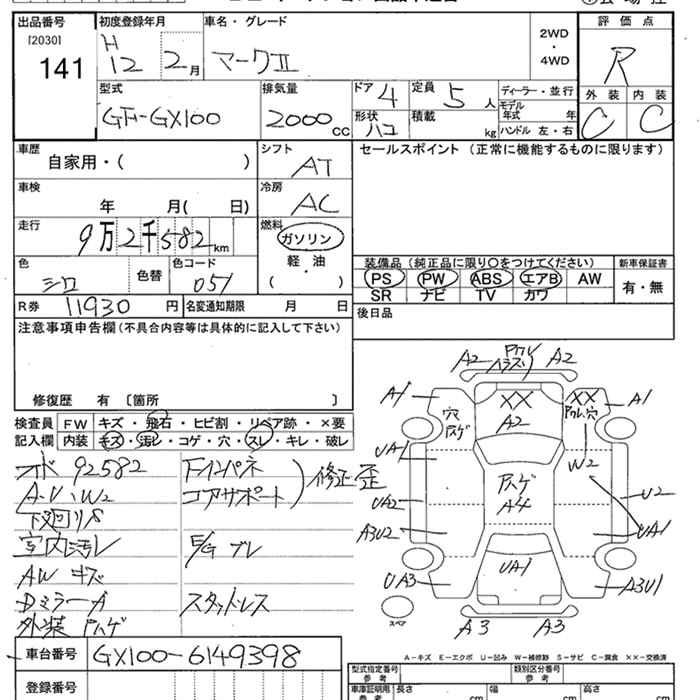 出品番号
[2030]
141
初度登録年月
H
12 2月
車名・グレード
マークⅡ
2WD
・
4WD
評価点
R
外装 内装
C C
型式
GF-GX100
排気量
2000cc
ドア 4
定員 5人
形状 ハコ
積載 kg
ディーラー・並行
モデル年式 年
ハンドル 左・右
車歴
自家用・( )
シフト
AT
セールスポイント (正常に機能するものに限ります)
車検
年 月( 日)
冷房
AC
走行
9万2千582km
燃料
ガソリン
軽・油
( )
色
シロ
色替
色コード
051
装備品 (純正品に限り○をつけてください)
PS PW ABS エアB AW
SR ナビ TV カワ
新車保証書
有・無
R券 11930円
名変通知期限 月 日
後日品
注意事項申告欄(不具合内容等は具体的に記入して下さい)
修復歴 有 〔箇所 〕
検査員記入欄
FW キズ・飛石・ヒビ割・リペア跡・×要
内装 キズ・汚レ・コゲ・穴・スレ・キレ・破レ
オド 92582
A・U・W2
下廻りS
室内汚レ
AW キズ
Dミラー A
外装 ハゲ
コアサポート
修正 歪
E/G ブレ
スタッドレス
A2 A2
A1 穴 XX A2 XX 穴 A1
UA1 W2
UA2 ハゲ A4 U2
A3U2 UA1
UA3 UA1 A3U1
スペア
A3 A3
A-キズ E-エクボ U-凹み W-補修跡 S-サビ C-腐食 ××-交換済
車台番号 GX100-6149398
登録番号
型式指定番号 参考
類別区分番号 参考
車庫証明用 参考
長さ cm
幅 cm
高さ cm